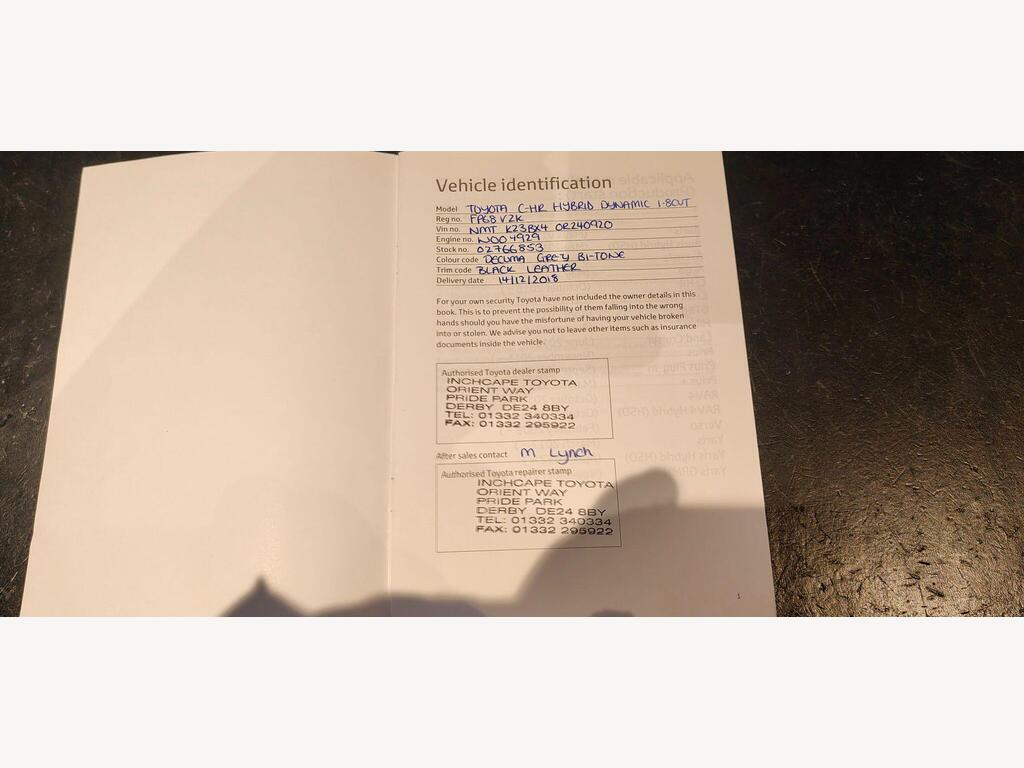 Vehicle identification
Model TOYOTA C-HR HYBRID DYNAMIC 1.8CVT
Reg no. FP68 VZK
Vin no. NMT K23BX4 0R240920
Engine no. N00 4929
Stock no. 02766853
Colour code DECUMA GREY BI-TONE
Trim code BLACK LEATHER
Delivery date 14/12/2018
For your own security Toyota have not included the owner details in this
book. This is to prevent the possibility of them falling into the wrong
hands should you have the misfortune of having your vehicle broken
into or stolen. We advise you not to leave other items such as insurance
documents inside the vehicle.
Authorised Toyota dealer stamp
INCHCAPE TOYOTA
ORIENT WAY
PRIDE PARK
DERBY DE24 8BY
TEL: 01332 340334
FAX: 01332 295922
After sales contact M Lynch
Authorised Toyota repairer stamp
INCHCAPE TOYOTA
ORIENT WAY
PRIDE PARK
DERBY DE24 8BY
TEL: 01332 340334
FAX: 01332 295922
1